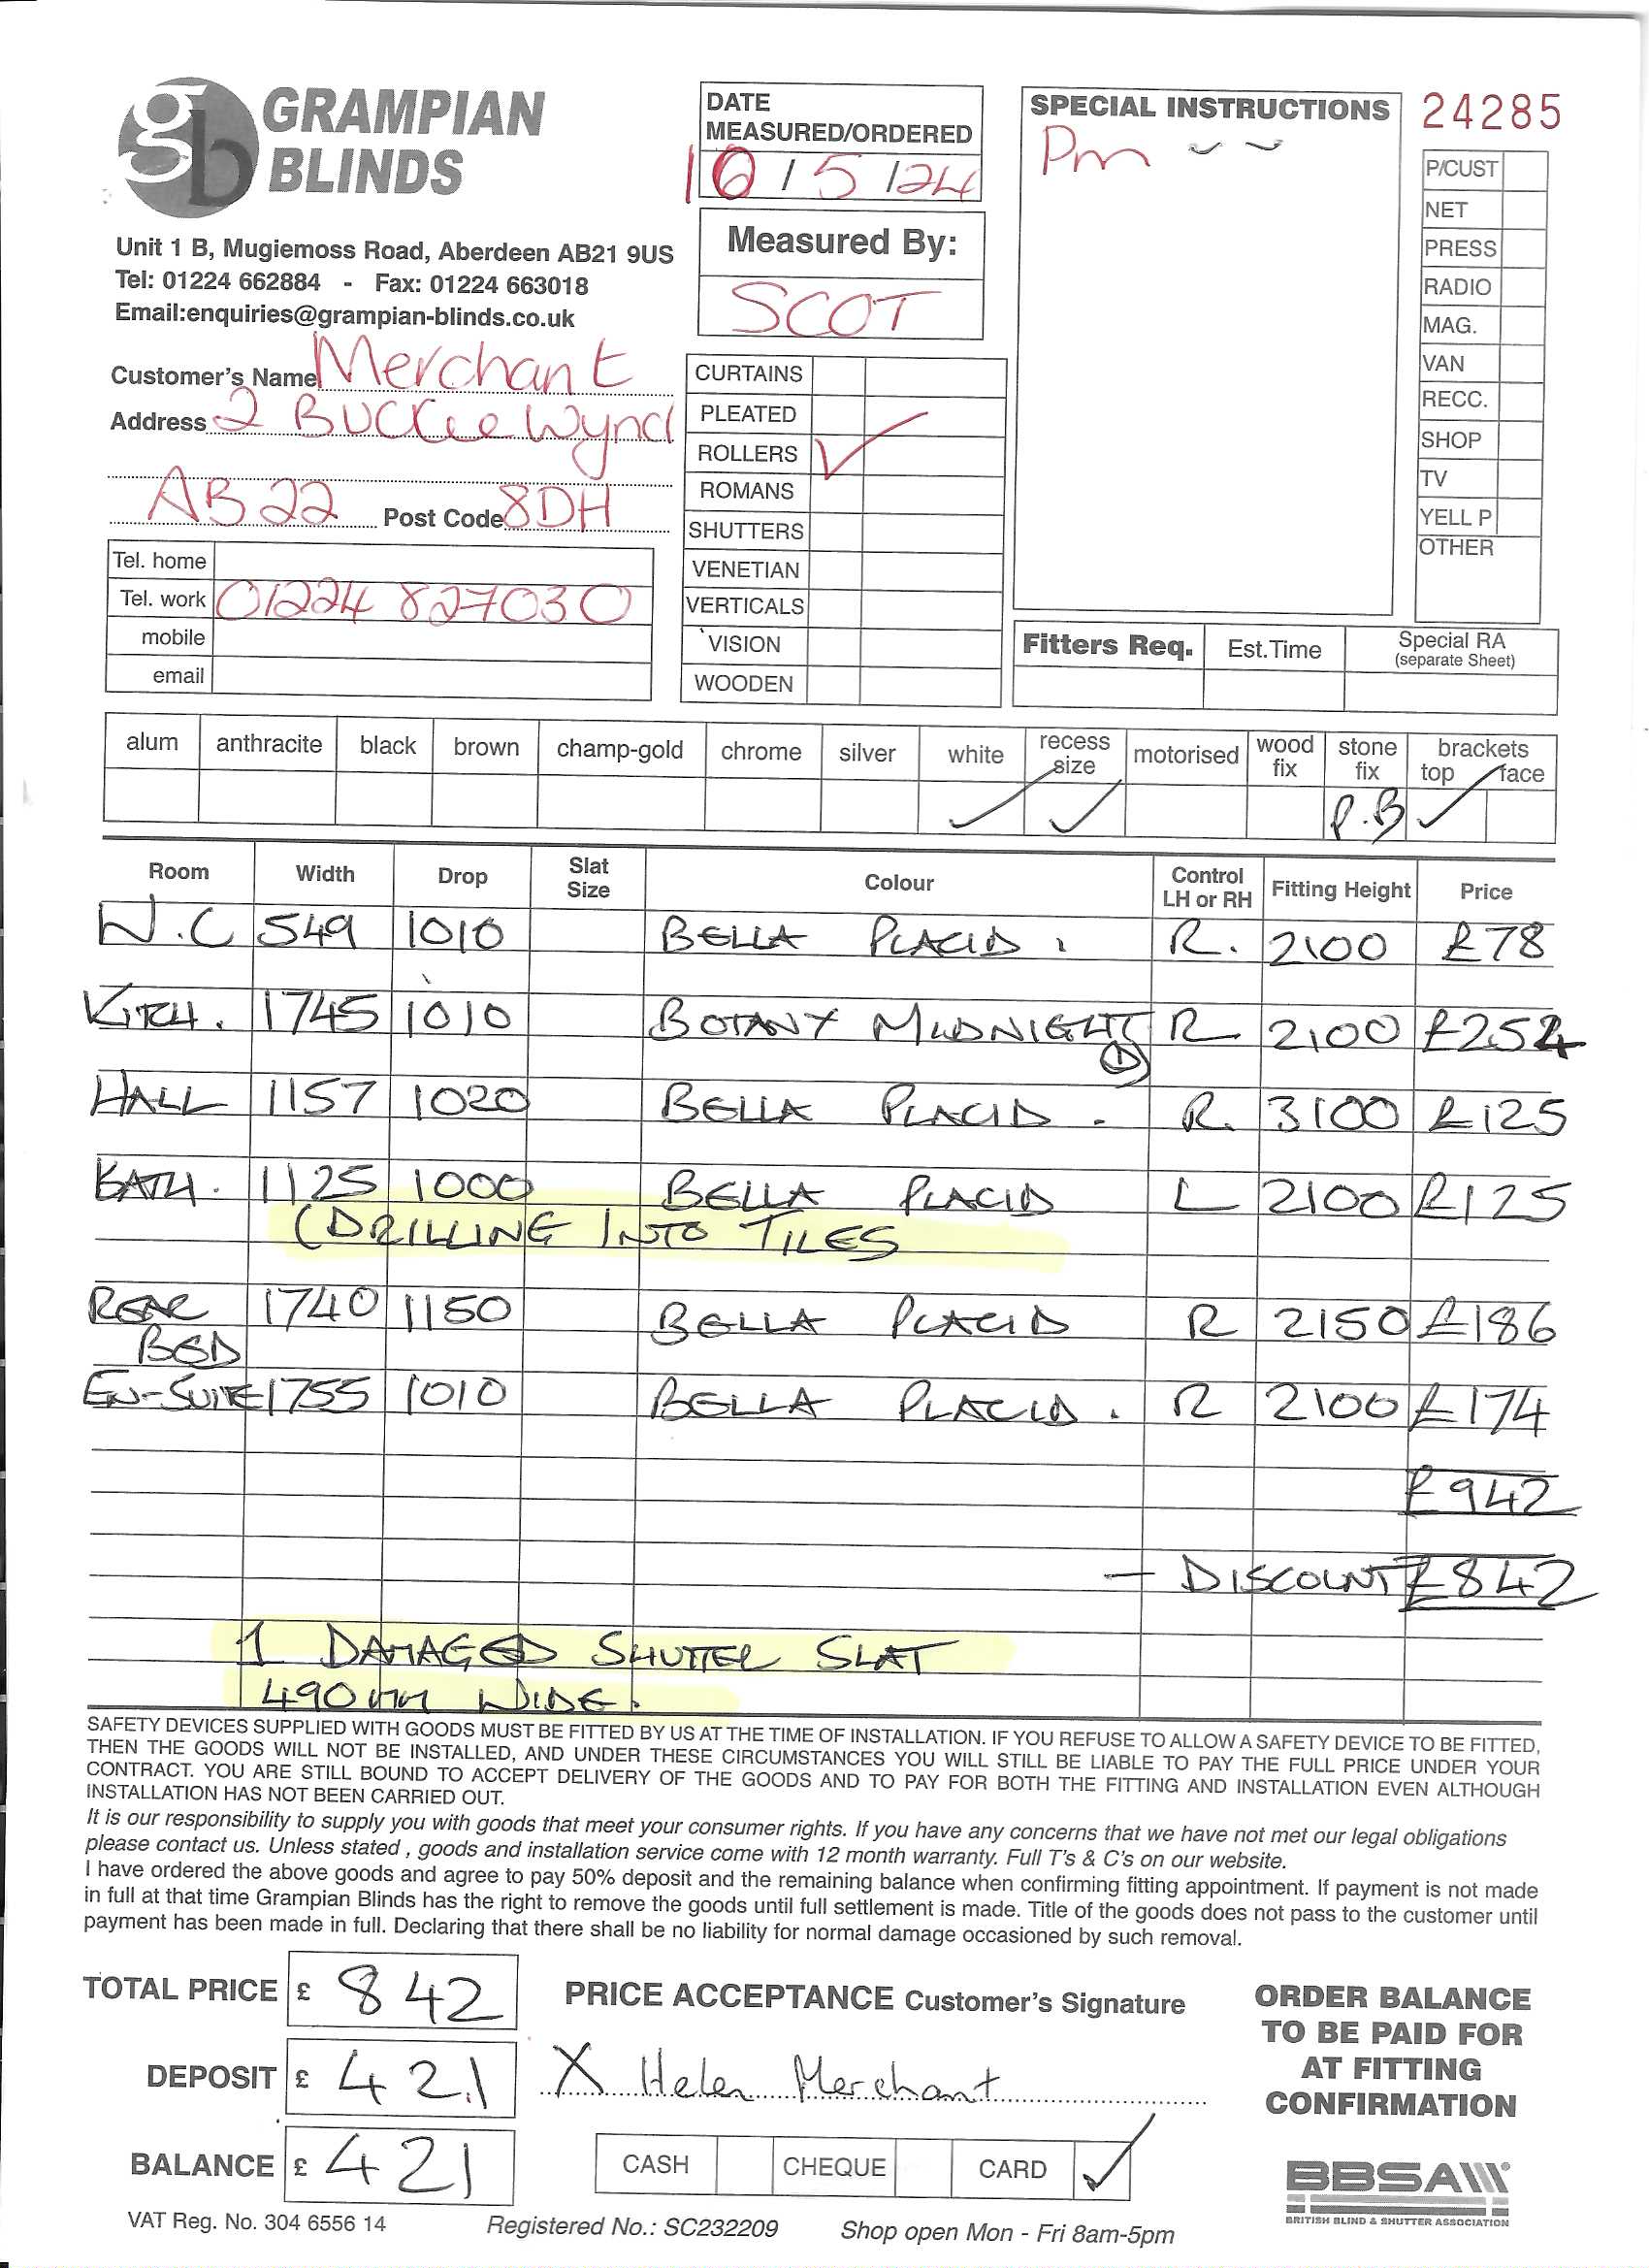 gb GRAMPIAN BLINDS
Unit 1 B, Mugiemoss Road, Aberdeen AB21 9US
Tel: 01224 662884 - Fax: 01224 663018
Email:enquiries@grampian-blinds.co.uk
Customer's Name Merchant
Address 2 Buckie Wynd
AB22 Post Code 8DH
Tel. home
Tel. work 01224 827030
mobile
email
DATE
MEASURED/ORDERED
/5/24
Measured By:
SCOT
CURTAINS
PLEATED
ROLLERS ✓
ROMANS
SHUTTERS
VENETIAN
VERTICALS
VISION
WOODEN
SPECIAL INSTRUCTIONS
Pm ~ ~
24285
P/CUST
NET
PRESS
RADIO
MAG.
VAN
RECC.
SHOP
TV
YELL P
OTHER
Fitters Req. Est.Time Special RA
(separate Sheet)
alum anthracite black brown champ-gold chrome silver white recess size motorised wood fix stone fix brackets top face
✓ ✓ P.B ✓
Room Width Drop Slat Size Colour Control LH or RH Fitting Height Price
W.C 549 1010 BELLA PLACID. R. 2100 £78
KITCH. 1745 1010 BOTANY MIDNIGHT R 2100 £254
HALL 1157 1020 BELLA PLACID. R. 3100 £125
BATH. 1125 1000 BELLA PLACID L 2100 £125
(DRILLING INTO TILES
REAR BED 1740 1150 BELLA PLACID R 2150 £186
EN-SUITE 1755 1010 BELLA PLACID. R 2100 £174
£942
— DISCOUNT £842
1 DAMAGED SHUTTER SLAT
490mm WIDE.
SAFETY DEVICES SUPPLIED WITH GOODS MUST BE FITTED BY US AT THE TIME OF INSTALLATION. IF YOU REFUSE TO ALLOW A SAFETY DEVICE TO BE FITTED,
THEN THE GOODS WILL NOT BE INSTALLED, AND UNDER THESE CIRCUMSTANCES YOU WILL STILL BE LIABLE TO PAY THE FULL PRICE UNDER YOUR
CONTRACT. YOU ARE STILL BOUND TO ACCEPT DELIVERY OF THE GOODS AND TO PAY FOR BOTH THE FITTING AND INSTALLATION EVEN ALTHOUGH
INSTALLATION HAS NOT BEEN CARRIED OUT.
It is our responsibility to supply you with goods that meet your consumer rights. If you have any concerns that we have not met our legal obligations
please contact us. Unless stated , goods and installation service come with 12 month warranty. Full T's & C's on our website.
I have ordered the above goods and agree to pay 50% deposit and the remaining balance when confirming fitting appointment. If payment is not made
in full at that time Grampian Blinds has the right to remove the goods until full settlement is made. Title of the goods does not pass to the customer until
payment has been made in full. Declaring that there shall be no liability for normal damage occasioned by such removal.
TOTAL PRICE £ 842
DEPOSIT £ 421
BALANCE £ 421
PRICE ACCEPTANCE Customer's Signature
X Helen Merchant
CASH CHEQUE CARD ✓
ORDER BALANCE
TO BE PAID FOR
AT FITTING
CONFIRMATION
BBSA
BRITISH BLIND & SHUTTER ASSOCIATION
VAT Reg. No. 304 6556 14 Registered No.: SC232209 Shop open Mon - Fri 8am-5pm